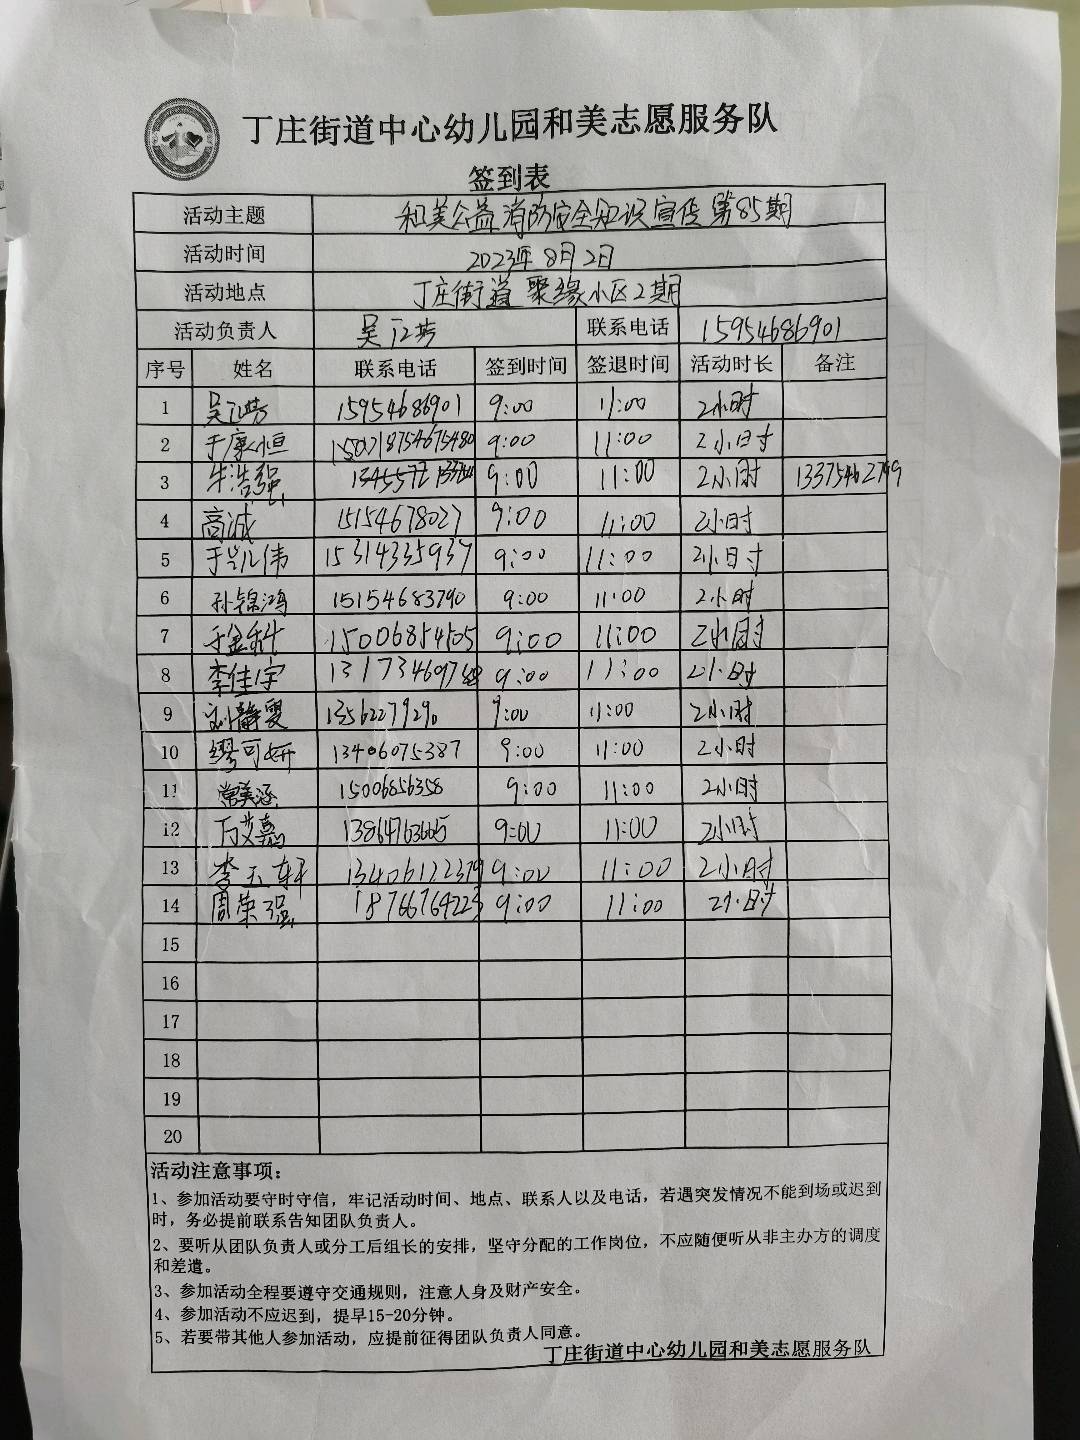 丁庄街道中心幼儿园和美志愿服务队
签到表
活动主题 和美公益消防安全知识宣传第85期
活动时间 2023年8月2日
活动地点 丁庄街道聚缘小区2期
活动负责人 吴江芳 联系电话 15954686901
序号 姓名 联系电话 签到时间 签退时间 活动时长 备注
1 吴江芳 15954686901 9:00 11:00 2小时
2 于康恒 9:00 11:00 2小时
3 牛浩强 9:00 11:00 2小时 13375462799
4 高诚 15154678027 9:00 11:00 2小时
5 于凯伟 15314335937 9:00 11:00 2小时
6 孙锦鸿 15154683790 9:00 11:00 2小时
7 于金科 15006854105 9:00 11:00 2小时
8 李佳宇 9:00 11:00 2小时
9 刘静雯 13562279290 9:00 11:00 2小时
10 缪可妍 13406075387 9:00 11:00 2小时
11 常美涵 15006856358 9:00 11:00 2小时
12 万艾嘉 9:00 11:00 2小时
13 李玉轩 13406122379 9:00 11:00 2小时
14 周荣强 18766764223 9:00 11:00 2小时
15
16
17
18
19
20
活动注意事项：
1、参加活动要守时守信，牢记活动时间、地点、联系人以及电话，若遇突发情况不能到场或迟到
时，务必提前联系告知团队负责人。
2、要听从团队负责人或分工后组长的安排，坚守分配的工作岗位，不应随便听从非主办方的调度
和差遣。
3、参加活动全程要遵守交通规则，注意人身及财产安全。
4、参加活动不应迟到，提早15-20分钟。
5、若要带其他人参加活动，应提前征得团队负责人同意。
丁庄街道中心幼儿园和美志愿服务队